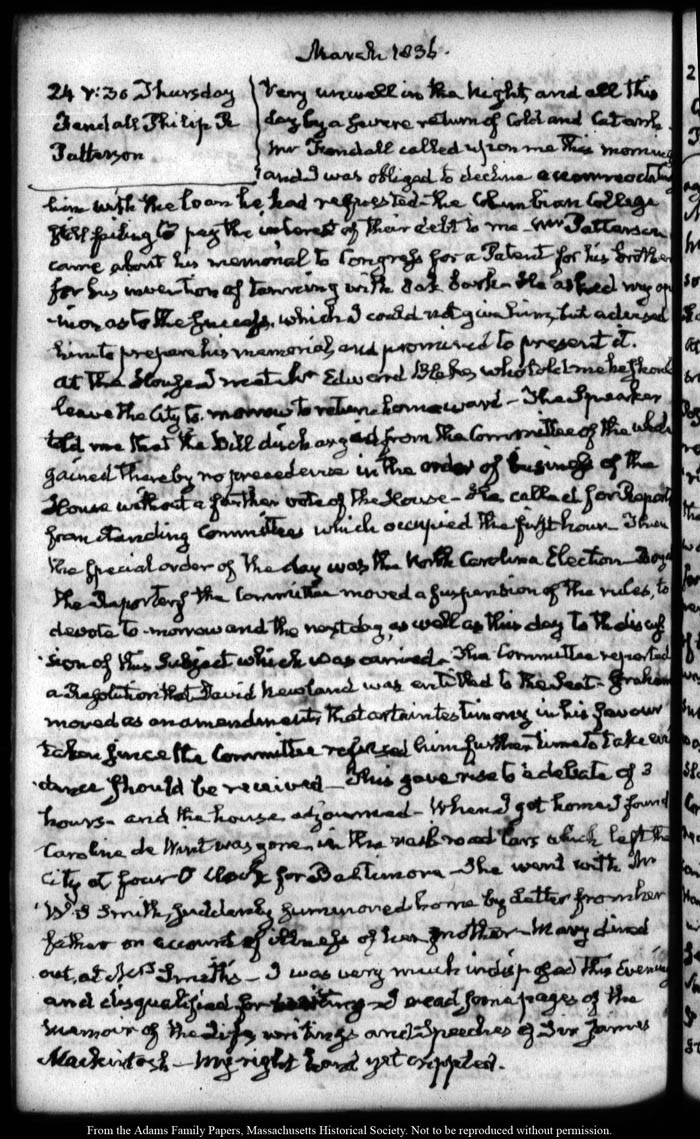 March 1836.
24. V:30 Thursday
Fendall Philip R
Patterson
Very unwell in the Night, and all this
day by a severe return of Cold and Catarrh.
Mr Fendall called upon me this morning
and I was obliged to decline accommodating
him with the loan he had requested the Columbian College
still failing to pay the interest of their debt to me. Mr Patterson
came about his memorial to Congress for a Patent for his brother
for his invention of tanning with Oak bark. He asked my opi
nion as to the success, which I could not give him, but advised
him to prepare his memorial, and promised to present it.
At the House I met Mr Edward Blake, who told me he should
leave the City to-morrow to return homeward. The Speaker
told me that the Bill discharged from the Committee of the whole
gained thereby no precedence in the order of business of the
House without a further vote of the House. He called for Reports
from standing Committees which occupied the first hour. Then
the special order of the day was the North Carolina Election. Boyd
the Reporter of the Committee moved a suspension of the rules, to
devote to-morrow and the next day, as well as this day to the discus
sion of this subject which was carried. The Committee reported
a Resolution that David Newland was entitled to the Seat. Graham
moved as an amendment, that certain testimony in his favour
taken since the Committee refused him further time to take evi
dence should be received. This gave rise to a debate of 3
hours. and the house adjourned. When I got home I found
Caroline de Wint was gone, in the rail road Cars which left the
City at four O'Clock for Baltimore. She went with Mr
W. S. Smith, suddenly summoned home by letter from her
father on account of illness of her mother. Mary dined
out, at Mrs Smith's. I was very much indisposed this Evening
and disqualified for writing. I read some pages of the
memoir of the Life, writings and Speeches of Sir James
Mackintosh. My right hand yet crippled.
From the Adams Family Papers, Massachusetts Historical Society. Not to be reproduced without permission.